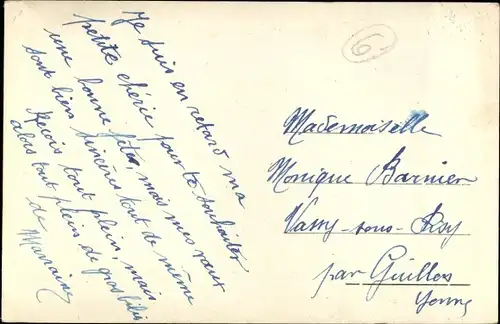 Je suis en retard ma
petite chérie pour te souhaiter
une bonne fête, mais mes vœux
sont bien sincères tout de même
Reçois tout plein, mais
alors tout plein de gros
de Marraine
6
Mademoiselle
Monique Barnier
Vassy-sous-
par Guillon
Yonne